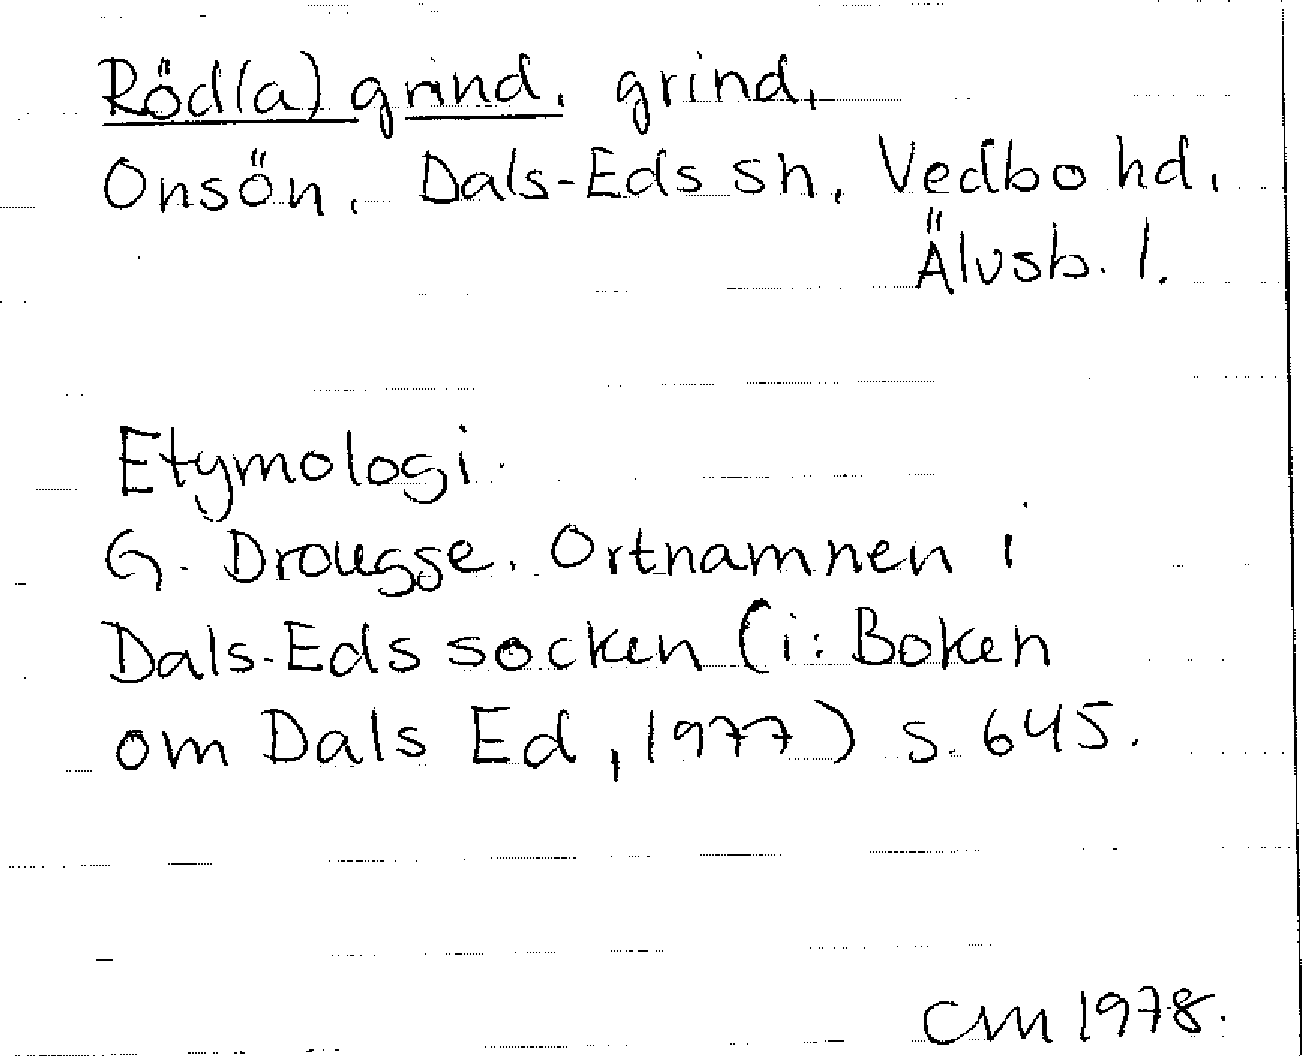 Röd(a) grind, grind,
Onsön, Dals-Eds sn, Vedbo hd,
Älvsb. l.
Etymologi.
G. Drougge. Ortnamnen i
Dals-Eds socken (i: Boken
om Dals Ed, 1977) s. 645.
CM 1978.